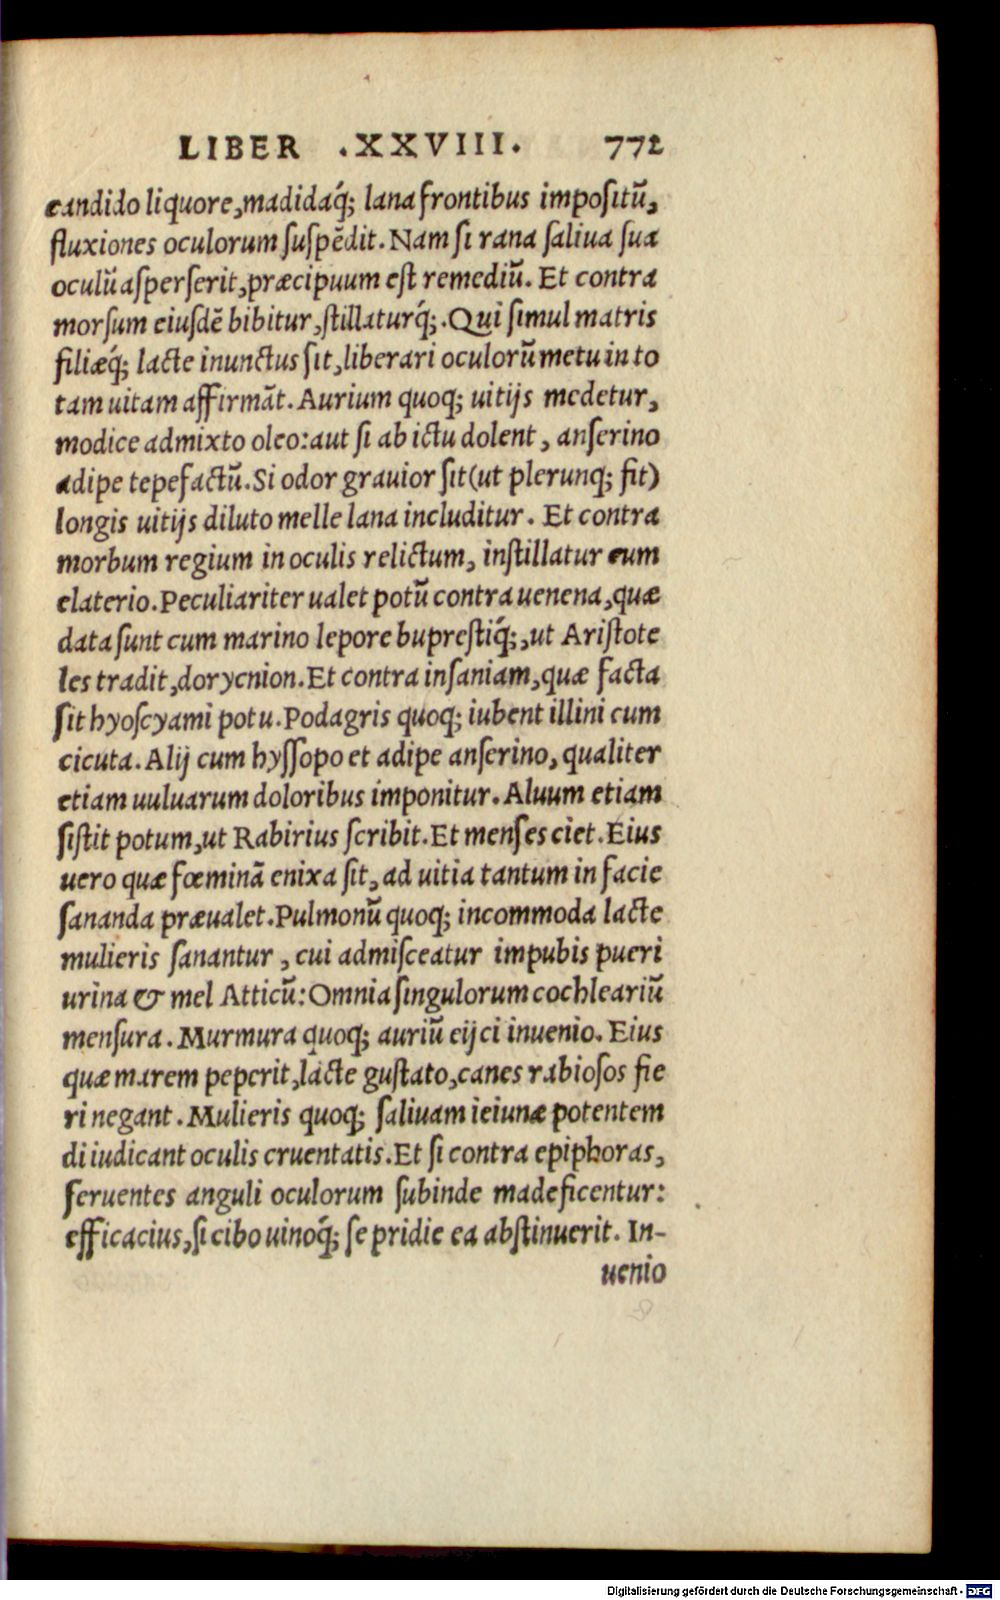 LIBER .XXVIII. 772
candido liquore,madidaq́; lana frontibus impositũ,
fluxiones oculorum suspẽdit.Nam si rana saliua sua
oculũ asperserit,præcipuum est remediũ. Et contra
morsum eiusdẽ bibitur,stillaturq́;.Qui simul matris
filiæq́; lacte inunctus sit,liberari oculorũ metu in to
tam uitam affirmãt.Aurium quoq; uitijs medetur,
modice admixto oleo:aut si ab ictu dolent, anserino
adipe tepefactũ.Si odor grauior sit(ut plerunq; fit)
longis uitijs diluto melle lana includitur. Et contra
morbum regium in oculis relictum, instillatur cum
elaterio.Peculiariter ualet potũ contra uenena,quæ
data sunt cum marino lepore buprestiq́;,ut Aristote
les tradit,dorycnion.Et contra insaniam,quæ facta
sit hyoscyami potu.Podagris quoq; iubent illini cum
cicuta.Alij cum hyssopo et adipe anserino,qualiter
etiam uuluarum doloribus imponitur.Aluum etiam
sistit potum,ut Rabirius scribit.Et menses ciet.Eius
uero quæ fœminã enixa sit,ad uitia tantum in facie
sananda præualet.Pulmonũ quoq; incommoda lacte
mulieris sanantur, cui admisceatur impubis pueri
urina & mel Atticũ:Omnia singulorum cochleariũ
mensura.Murmura quoq; auriũ eijci inuenio. Eius
quæ marem peperit,lacte gustato,canes rabiosos fie
ri negant.Mulieris quoq; saliuam ieiunæ potentem
diiudicant oculis cruentatis.Et si contra epiphoras,
feruentes anguli oculorum subinde madeficentur:
efficacius,si cibo uinoq́; se pridie ea abstinuerit. In-
uenio
Digitalisierung gefördert durch die Deutsche Forschungsgemeinschaft - DFG